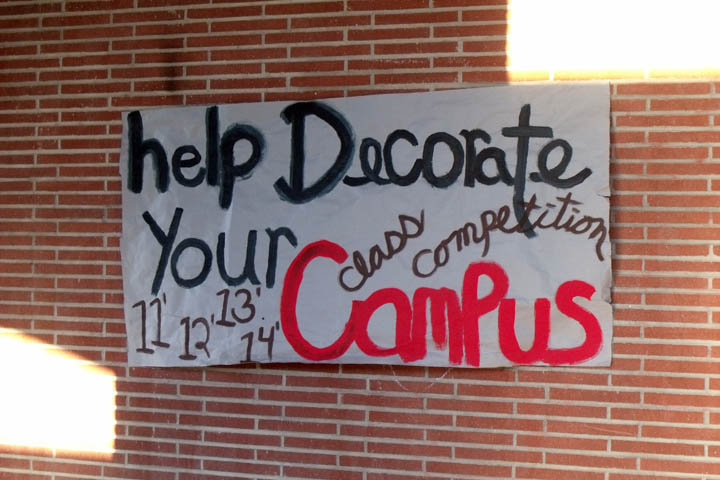 help Decorate
Your
class
competition
Campus
11' 12' 13' 14'